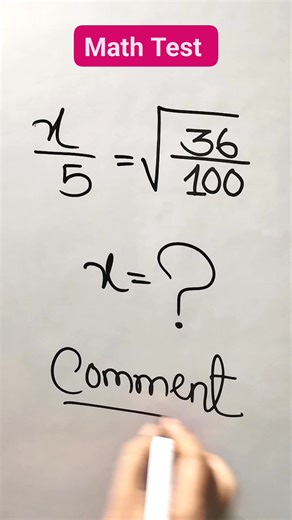 Math Test
x/5 = √36/100
x = ?
Comment